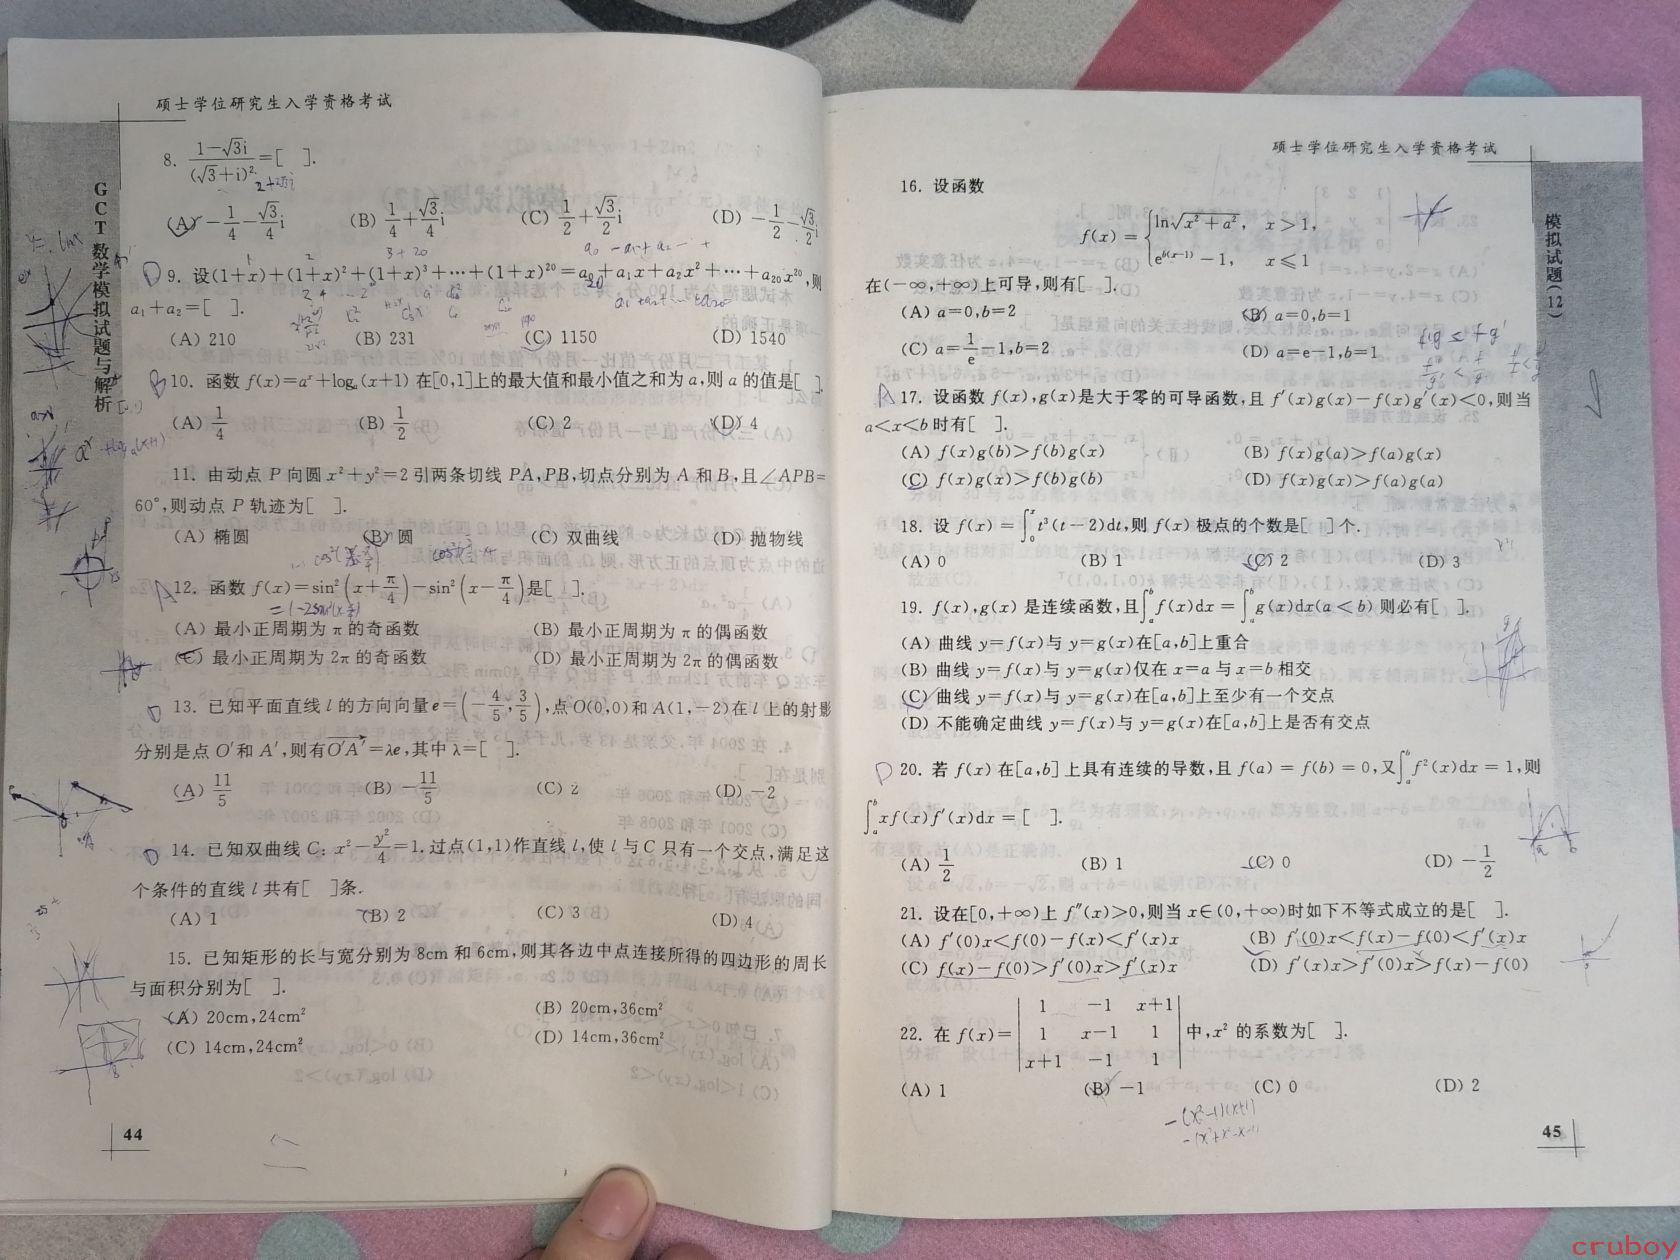 硕士学位研究生入学资格考试
GCT数学模拟试题与解析
8. \frac{1-\sqrt{3}i}{(\sqrt{3}+i)^2}=[ ].
(A) -\frac{1}{4}-\frac{\sqrt{3}}{4}i (B) \frac{1}{4}+\frac{\sqrt{3}}{4}i (C) \frac{1}{2}+\frac{\sqrt{3}}{2}i (D) -\frac{1}{2}-\frac{\sqrt{3}}{2}i
D 9. 设(1+x)+(1+x)²+(1+x)³+⋯+(1+x)²⁰=a₀+a₁x+a₂x²+⋯+a₂₀x²⁰,则
a₁+a₂=[ ].
(A) 210 (B) 231 (C) 1150 (D) 1540
B 10. 函数 f(x)=aˣ+logₐ(x+1) 在[0,1]上的最大值和最小值之和为 a,则 a 的值是[ ].
(A) \frac{1}{4} (B) \frac{1}{2} (C) 2 (D) 4
11. 由动点 P 向圆 x²+y²=2 引两条切线 PA,PB,切点分别为 A 和 B,且∠APB=
60°,则动点 P 轨迹为[ ].
(A) 椭圆 (B) 圆 (C) 双曲线 (D) 抛物线
A 12. 函数 f(x)=sin²(x+\frac{π}{4})-sin²(x-\frac{π}{4})是[ ].
(A) 最小正周期为 π 的奇函数 (B) 最小正周期为 π 的偶函数
(C) 最小正周期为 2π 的奇函数 (D) 最小正周期为 2π 的偶函数
D 13. 已知平面直线 l 的方向向量 e=(-\frac{4}{5},\frac{3}{5}),点O(0,0)和 A(1,-2)在 l 上的射影
分别是点 O′和 A′,则有\overrightarrow{O′A′}=λe,其中 λ=[ ].
(A) \frac{11}{5} (B) -\frac{11}{5} (C) 2 (D) -2
D 14. 已知双曲线 C: x²-\frac{y²}{4}=1.过点(1,1)作直线 l,使 l 与 C 只有一个交点,满足这
个条件的直线 l 共有[ ]条.
(A) 1 (B) 2 (C) 3 (D) 4
15. 已知矩形的长与宽分别为 8cm 和 6cm,则其各边中点连接所得的四边形的周长
与面积分别为[ ].
(A) 20cm,24cm² (B) 20cm,36cm²
(C) 14cm,24cm² (D) 14cm,36cm²
44
硕士学位研究生入学资格考试
模拟试题(12)
16. 设函数
f(x)=\begin{cases} ln\sqrt{x²+a²}, & x>1, \\ e^{b(x-1)}-1, & x≤1 \end{cases}
在(-∞,+∞)上可导,则有[ ].
(A) a=0,b=2 (B) a=0,b=1
(C) a=\frac{1}{e}-1,b=2 (D) a=e-1,b=1
A 17. 设函数 f(x),g(x)是大于零的可导函数,且 f′(x)g(x)-f(x)g′(x)<0,则当
a<x<b 时有[ ].
(A) f(x)g(b)>f(b)g(x) (B) f(x)g(a)>f(a)g(x)
(C) f(x)g(x)>f(b)g(b) (D) f(x)g(x)>f(a)g(a)
18. 设 f(x)=∫₀ˣ t³(t-2)dt,则 f(x) 极点的个数是[ ]个.
(A) 0 (B) 1 (C) 2 (D) 3
19. f(x),g(x) 是连续函数,且∫ₐᵇ f(x)dx=∫ₐᵇ g(x)dx(a<b) 则必有[ ].
(A) 曲线 y=f(x)与 y=g(x)在[a,b]上重合
(B) 曲线 y=f(x)与 y=g(x)仅在 x=a 与 x=b 相交
(C) 曲线 y=f(x)与 y=g(x)在[a,b]上至少有一个交点
(D) 不能确定曲线 y=f(x)与 y=g(x)在[a,b]上是否有交点
D 20. 若 f(x) 在[a,b]上具有连续的导数,且 f(a)=f(b)=0,又∫ₐᵇ f²(x)dx=1,则
∫ₐᵇ xf(x)f′(x)dx=[ ].
(A) \frac{1}{2} (B) 1 (C) 0 (D) -\frac{1}{2}
21. 设在[0,+∞)上 f″(x)>0,则当 x∈(0,+∞)时如下不等式成立的是[ ].
(A) f′(0)x<f(0)-f(x)<f′(x)x (B) f′(0)x<f(x)-f(0)<f′(x)x
(C) f(x)-f(0)>f′(0)x>f′(x)x (D) f′(x)x>f′(0)x>f(x)-f(0)
22. 在 f(x)=\begin{vmatrix} 1 & -1 & x+1 \\ 1 & x-1 & 1 \\ x+1 & -1 & 1 \end{vmatrix}中,x² 的系数为[ ].
(A) 1 (B) -1 (C) 0 (D) 2
-(x²-1)(x+1)
45
cruboy